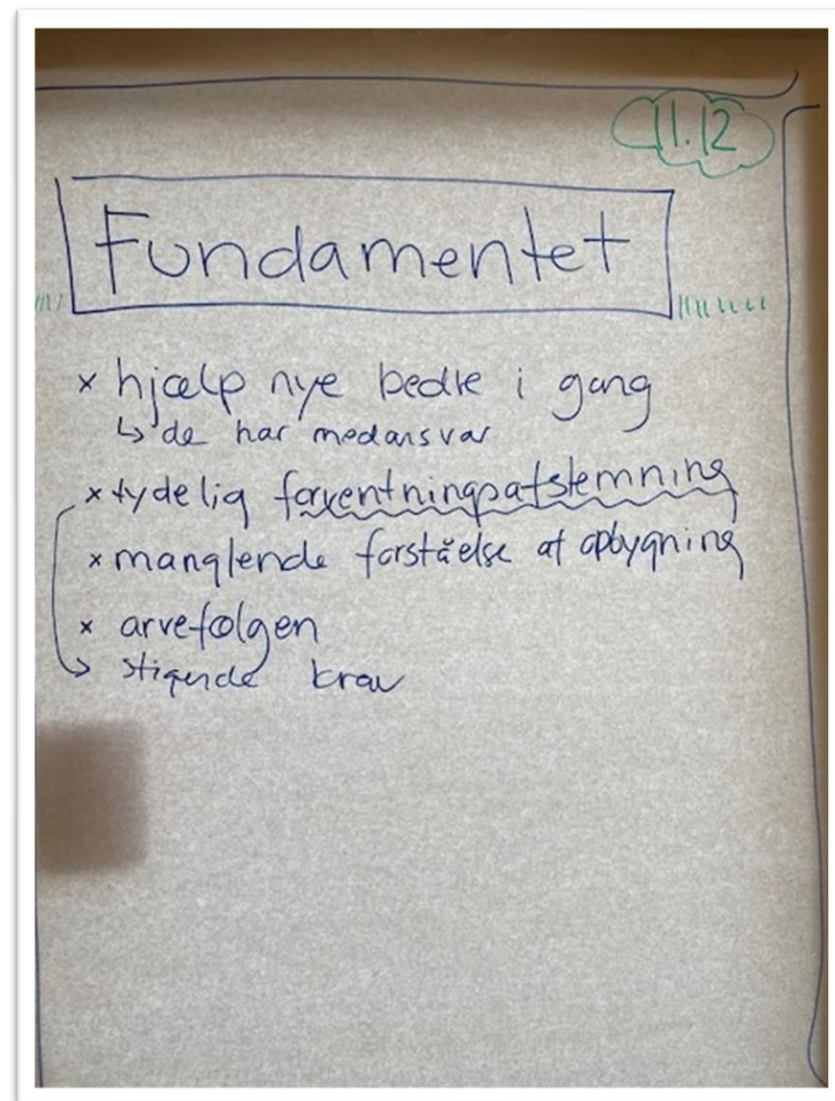 11.12
Fundamentet
x hjælp nye bedre i gang
↳ de har medansvar
x tydelig forventningsafstemning
x manglende forståelse af opbygning
x arvefølgen
→ stigende krav